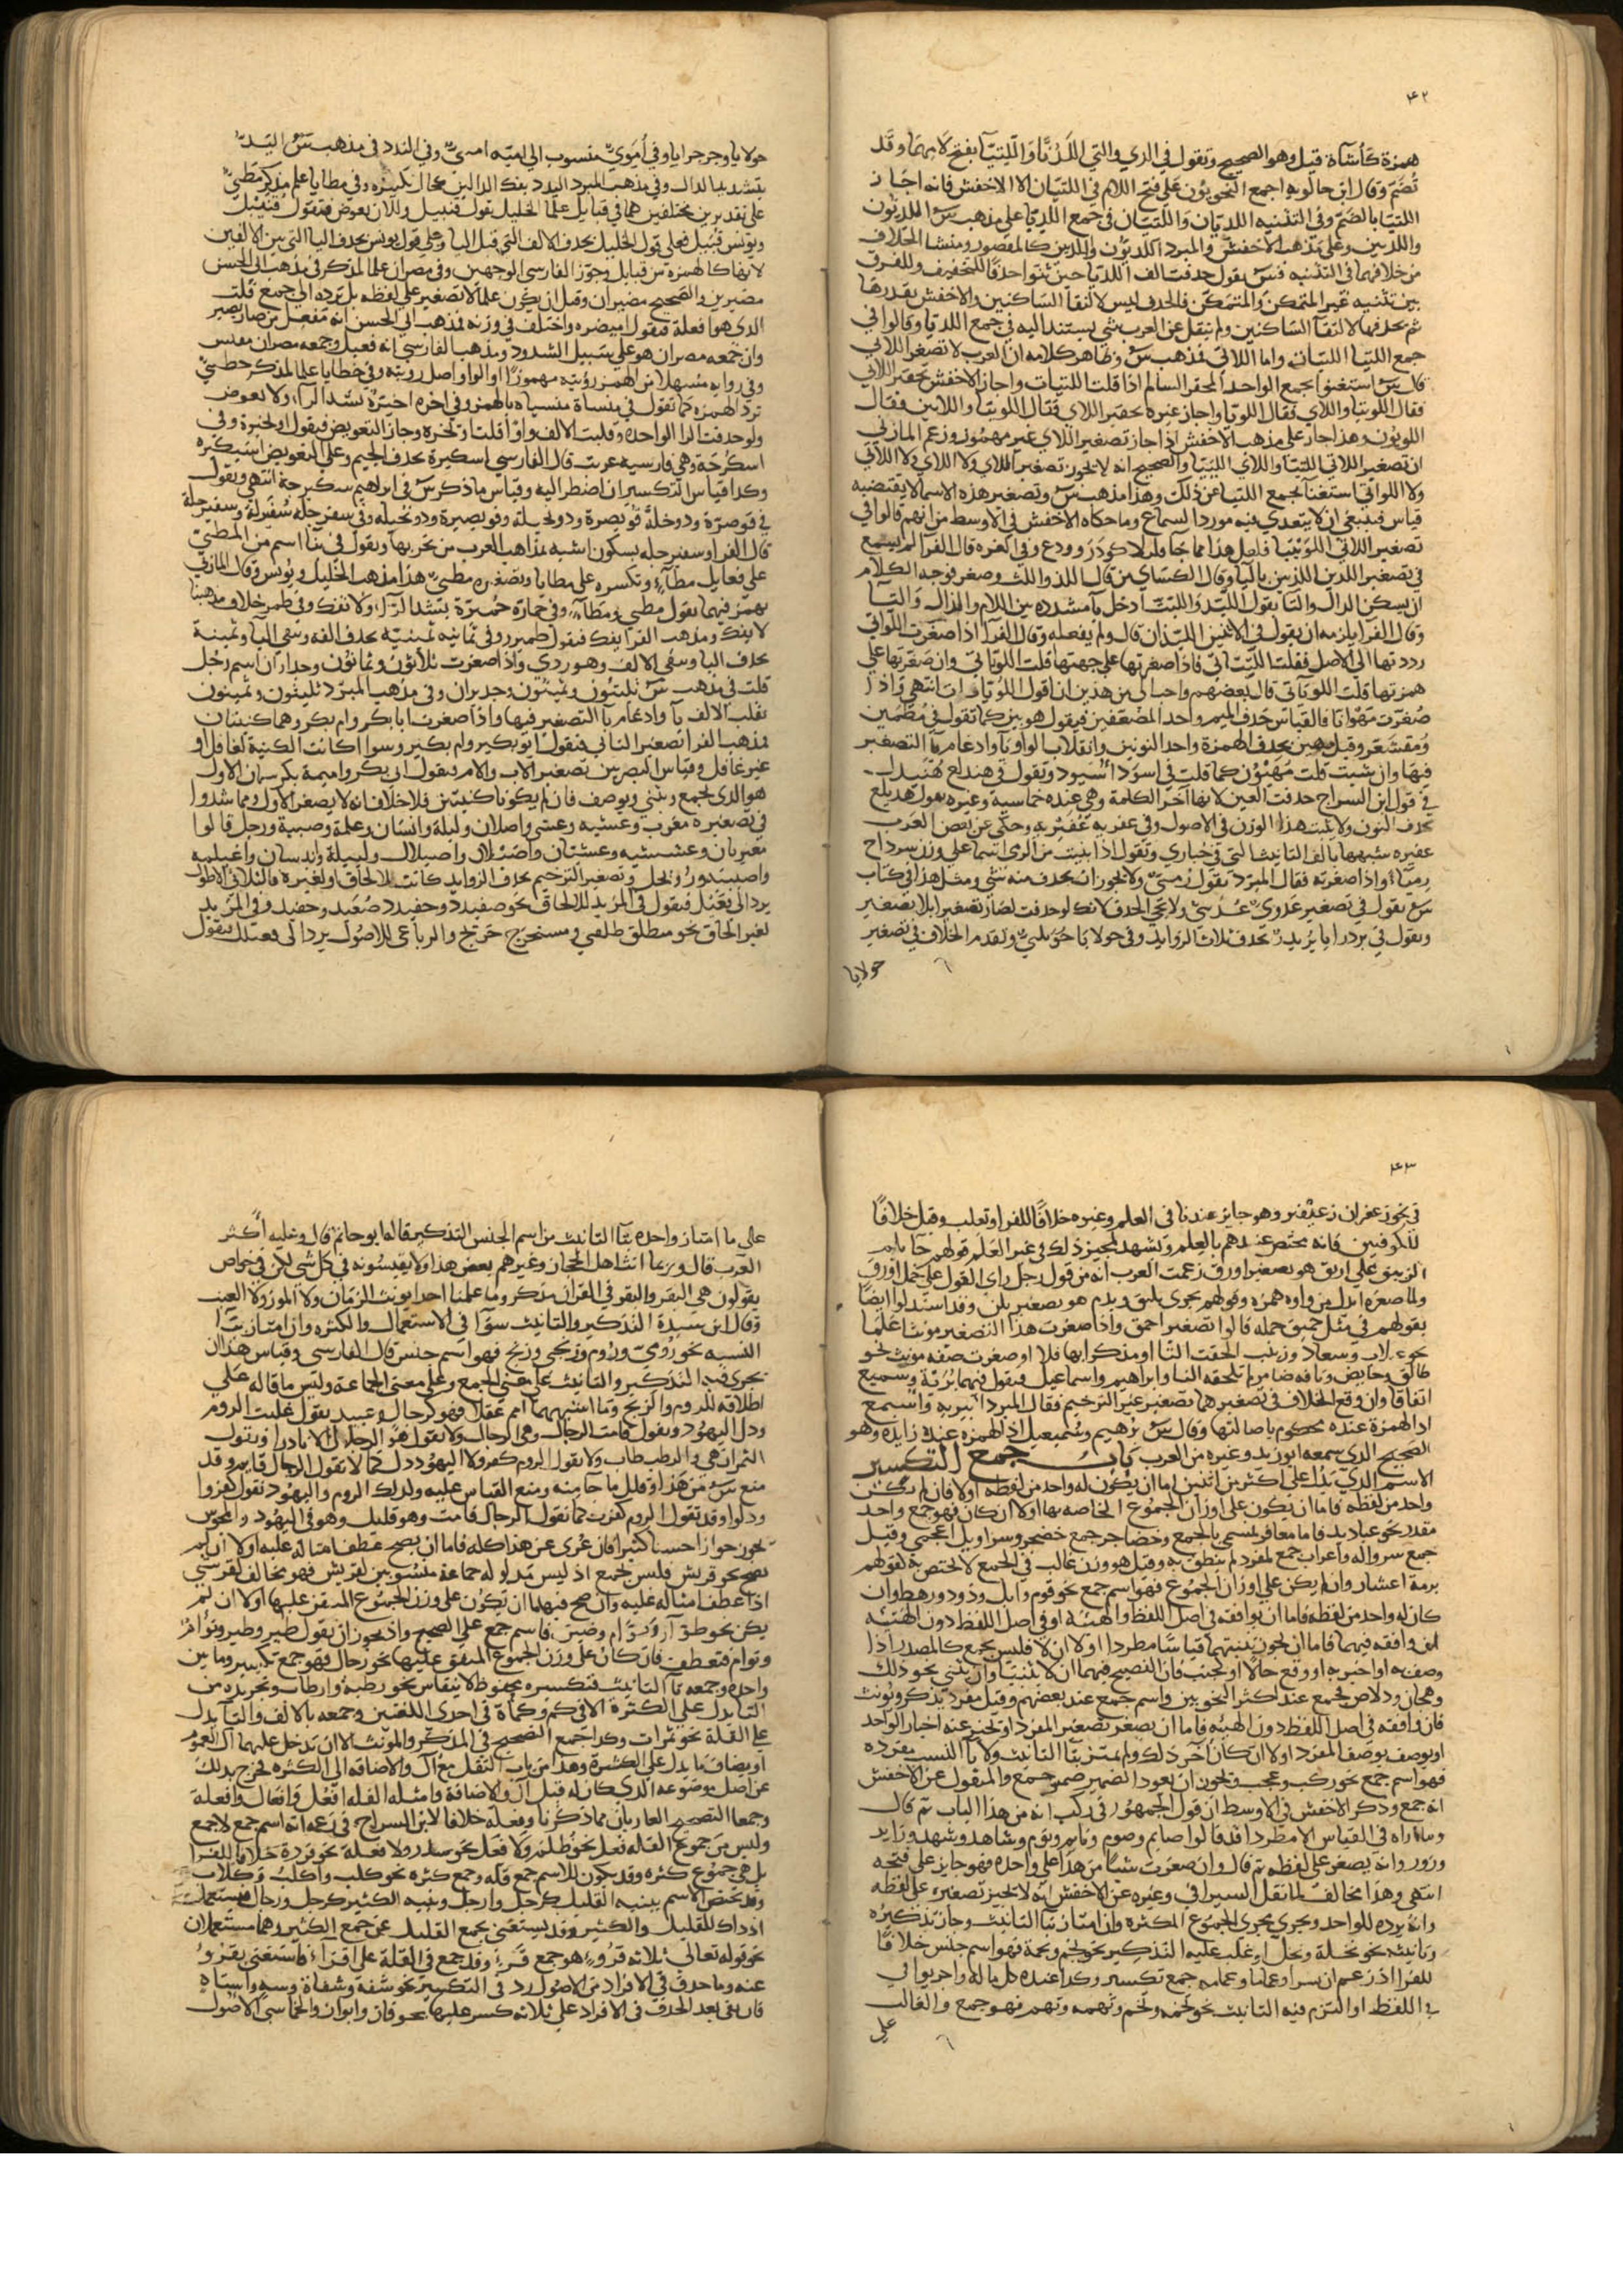 ٤٢
همزة كأشآة قيل وهو الصحيح وتقول في الذي والتي اللَّذَيَّا وَاللَّتَيَّا بفتح لامهما وقد
تُضَمّ وقال ابن خالويه اجمع النحويون على فتح اللام في اللتيان الا الاخفش فانه اجاز
اللتيا بالضم وفي التثنيه اللذيّان وَاللّتيّان في جمع اللذيا على مذهب س اللذيُّون
واللذيين وعلى مذهب الاخفش والمبرد اللذيَّون واللذيين كالمقصور ومنشا الخلاف
من خلافهما في التثنيه فس يقول حذفت الف اللذيا حين ثنوا حذفًا للتخفيف وللفرق
بين تثنيه غير المتمكن والمتمكّن فالحذف ليس لالتقآ الساكنين والاخفش يقدرها
ثم يحذفها لالتقآ السّاكنين ولم ينقل عن العرب شي يستند اليه في جمع اللذيا وقالوا في
جمع اللتيا اللتيات واما اللاتي فمذهب س وظاهر كلامه ان العرب لا تصغر اللاتي
قال س استغنوا بجمع الواحد المحقر السالم اذا قلت اللتيات واجاز الاخفش تحقير اللاتي
فقال اللويتيا واللاي فقال اللويّا واجاز غيره تحقير اللاي فقال اللويّا واللاين فقال
اللويّون وهذا جار على مذهب الاخفش اذا جاز تصغير اللاي غير مهموز وزعم المازني
ان تصغير اللاتي اللتيا واللاي اللييّا والصحيح انه لا يجوز تصغير اللاي ولا اللاي ولا اللاتي
ولا اللواتي استغنآ بجمع اللتيا عن ذلك وهذا مذهب س وتصغير هذه الاسما لا يقتضيه
قياس فينبغي ان لا يتعدي فيه مورد السماع وما حكاه الاخفش في الاوسط من انهم قالوا في
تصغير اللاتي اللوَيْتيا
في تصغير اللذين اللذيين بالياء وقال الكسائي من قال اللذ واللت وصغر فوجه الكلام
ان يسكن الذال والتا يقول اللّيذ وَاللّيتّ ادخل يآ مشدده بين اللام والذال وَالتّا
وقال الفرا يلزمه ان يقول في الاثنين اللّيذان قال ولم يفعله وقال الفرا اذا صغرت اللّواتي
رددتها الى الاصل فقلت اللّتيّاتي فاذا صغرتها على جهتها قلت اللويّاتي وان صَغّرتها على
همزتها قلت اللويآتي قال بعضهم واحب الي من هذين ان اقول اللُّويّات انتهى واذا
صُغرت مَهْوَانا فالقياس حذف الميم واحد المضعفين فيقول هوين كما تقول في مُطْمَئِن
وَمُقشَعر وقيل مهين بحذف الهمزة واحد النونين وانقلاب الواو يآ وادغام يآ التصغير
فيها وان شيت قلت مُهَيْوِن كما قلت في اسوَد اُسَيوِد وتقول في هندلع هُنَيدل
في قول ابن السراج حذفت العين لانها آخر الكلمة وهي عنده خماسية وغيره يقول هديلع
بحذف النون ولا يثبت هذا الوزن في الاصول وفي عفريه عُفَيريه وحكى عن بعض العرب
عفيره شبهها بالف التانيث التي في حباري وتقول اذا بنيت من الرمي اسما على وزن سرداح
رِميَاء واذا صغرته فقال المبرد تقول رُميّ ولا يجوز ان يحذف منه شي ومثل هذا في كتاب
س يقول في تصغير عدوي عُدَييّ ولا يجي الحذف لانك لو حذفت لصار تصغيرا بلا تصغير
وتقول في بردرايا بُرَيدِر تحذف ثلاث الزوايد وفي حولايا حُوَيليّ وتقدم الخلاف في تصغير
حولايا
حولايا وجرجرايا وفي اُمَوي منسوب الى اميّه اميّ وفي الندد في مذهب س اليدّ
بتشديد الدال وفي مذهب المبرد اليدد بفك الدالين كحال تكبيره وفي مطايا علم مذكر مُطيّ
على تقديرين مختلفين هما في قبايل علما الخليل يقول قبيل والآن يعوض فتقول قبيئل
ويونس قبيّل فعلى قول الخليل بحذف الالف التي قبل اليا وعلى قول يونس بحذف اليا التي بين الالفين
لانها كالهمزة من قبايل وجوّز الفارسي الوجهين وفي مصران علما لمذكر في مذهب ابي الحسن
مصيرين والصحيح مصيران وقيل ان يكون علما لا تصغير على لفظه بل يرده الى جمع قلت
الذي هو افعلة فيقول اميصره واختلف في وزنه فذهب ابي الحسن انه مفعل من صار يصير
وان جمعه مصران هو على سبيل الشذوذ ومذهب الفارسي انه فعيل وجمعه مصران مقيس
وفي روايه مسهلا من الهمز رؤيّه مهموزًا والواو اصل رويّه وفي خطايا علما لمذكر خطيّ
ترد الهمزه كما تقول في منساة منيسيه بالهمز وفي اخره اخيرّة بشد الرآء ولا تعوض
ولو حذفت الرا الواحدة وقلبت الالف واوًا قلت وجاز التعويض فيقول
اسكُرجَة وهي فارسيه عربت قال الفارسي اسيكرة بحذف الجيم وعلى التعويض اسيكيره
وكذا قياس التكسير ان اضطر اليه وقياس ما ذكر س في ابراهيم سكيرجة انتهى وتقول
في قوصرّة ودوخلّة قُويصرة ودويخلة وقويصيرة ودويخيله وفي سفرجله سُفَيرِلة وسفيرجلة
قال الفرا وسفيرجله بسكون اشبه بمذاهب العرب من تحريها وتقول في بنآ اسم من المَطيّ
على فعايل مطآءٍ وتكسره على مطايا وتصغيره مُطيّ هذا مذهب الخليل ويونس وقال المازني
بهمز فيهما يقول مطيء ومطآء وفي حمارّه حُميرّة بشد الرآء ولا تفك وفي طمر خلاف مذهبنا
لا يفك ومذهب الفرا يفك فيقول طميرر وفي ثمانيه ثمينيّة بحذف الفه وتبقي اليا وثمينة
بحذف اليا وتبقي الالف وهو ردي واذا صغرت ثلاثون وثمانون وجداران اسم رجل
قلت في مذهب س ثليثون وثمينون وجديران وفي مذهب المبرد ثليّثون وثميّنون
بقلب الالف يآ وادغام يآ التصغير فيها واذا صغرت ابا بكر وام بكر وهما كنيتان
فمذهب الفرا تصغير الثاني فتقول ابو بكير وام بكير وسوا اكانت الكنية لعاقل او
غير عاقل وقياس البصريين تصغير الاب والام فيقول ابي بكر واميمة بكر لان الاول
هو الذي يجمع ويثني ويوصف فان لم يكونا كنيتين فلا خلاف انه لا يصغر الاول ومما شذوا
في تصغيره مغرب وعشيه وعشي واصلان وليلة وانسان وغلمة وصبية ورجل قالوا
مغيربان وعشيشيه وعشيّان واصيلان واصيلال ولييلة وانيسان واغيلمه
واصيبيه ورويجل وتصغير الترخيم بحذف الزوايد كانت للالحاق او لغيره فالثلاثي الاصول
يرد الى فُعَيل فيقول في المزيد للالحاق نحو ضفندد وخفيدد ضُفَيد وخفيد وفي المزيد
لغير الحاق نحو منطلق طُليق ومستخرج خريج والرباعي الاصول يرد الى فعيعل فيقول
٤٣
في نحو زعفران زعَيْفر وهو جايز عندنا في العلم وغيره خلافًا للفرا وثعلب وقيل خلافًا
للكوفيين فانه مختص عندهم بالعلم ويشهد لمجيز ذلك في غير العلم قولهم جآ بام
الربيق على اريق هو تصغير اورق زعمت العرب انه من قول رجل راى الغول على جمل اورق
ولما صغره ابدل من واوه همزه وقولهم يجري بليق ويذم هو تصغير بلق وقد استدلوا ايضًا
بقولهم في مثل حميق جمله قالوا تصغير احمق واذا صغرت هذا التصغير مونثا علمًا
نحو غلاب وسعاد وزينب الحقت التا او مذكرا بها فلا او صغرت صفه مونث نحو
طالق وحايض وناقه ضامر لم تلحقه التا وابراهيم واسماعيل فيقول فيهما بُرَيْه وَسميع
اتفاقا وان وقع الخلاف في تصغيرهما تصغير غير الترخيم فقال المبرد ابيريه واسيمع
اذ الهمزة عنده محكوم باصالتها وقال س بُريهيم وسُميعيل اذ الهمزة عنده زايدة وهو
الصحيح الذي سمعه ابو زيد وغيره من العرب باب جمع التكسير
الاسم الذي يدل على اكثر من اثنين اما ان يكون له واحد من لفظه اولا فان لم يكن
واحد من لفظه فاما ان يكون على اوزان الجموع الخاصه بها اولا ان كان فهو جمع واحد
مقدر نحو عباديد فاما معافر لمسمى بالجمع وحضاجر جمع حضجر وسراويل اعجمي وقيل
جمع سرواله واعراب جمع لمفرد لم ينطق به وقيل هو وزن غالب في الجمع لا مختص به لقولهم
برمة اعشار وان لم يكن على اوزان الجموع فهو اسم جمع نحو قوم وابل وذود ورهط وان
كان له واحد من لفظه فاما ان يوافقه في اصل اللفظ والهيئه او في اصل اللفظ دون الهيئه
ان وافقه فيهما فاما ان يجوز تثنيتهما قياسًا مطردا اولا ان لا فليس بجمع كالمصدر اذا
وصف به او اخبر به او وقع حالا او كجنب فان الفصيح فيهما ان لا يثنيا وان يثني نحو دلك
وهجان ودلاص فجمع عند اكثر النحويين واسم جمع عند بعضهم وقيل مفرد يذكر ويونث
فان وافقه في اصل اللفظ دون الهيئه فاما ان يصغر تصغير المفرد او يخبر عنه اخبار الواحد
او يوصف بوصف المفرد اولا ان كان آخر ذلك ولم يميز بتا التانيث ولا يآ النسب مفرده
فهو اسم جمع نحو ركب وعجب ويجوز ان يعود الضمير ضمير جمع والمنقول عن الاخفش
انه جمع وذكر الاخفش في الاوسط ان قول الجمهور في ركب انه من هذا الباب ثم قال
وما اراه في القياس الا مطردا قد قالوا صايم وصوم ونايم ونوم وشاهد وشهد وزاير
وزور وانه يصغر على لفظه ثم قال وان صغرت شيًا من هذا على واحده فهو جايز على قبحه
انتهى وهذا مخالف لما نقل السيرافي وغيره عن الاخفش انه لا يجيز تصغيره على لفظه
وانه يرده للواحد ويجري مجرى الجموع المكثره وان امتاز بتا التانيث وجاز تذكيره
وتانيثه نحو نخلة ونخل او غلب عليه التذكير نحو نجم ونجمة فهو اسم جنس خلافًا
للفرا اذ زعم ان بسرا وعماما وعمامه جمع تكسير وكذا عنده كل ما له واحد يوافقه
في اللفظ او التزم فيه التانيث نحو تخمه وتخم وتهمه وتهم فهو جمع والغالب
على
على ما امتاز واحده بتآ التانيث من اسم الجنس التذكير قاله ابو حاتم قال وعليه اكثر
العرب قال وربما انّث اهل الحجاز وغيرهم بعض هذا ولا يقيسونه في كل شي لكن في خاص
يقولون هي البقر والبقر في القران مذكر وما علمنا احدا يونث الرمّان ولا الموز ولا العنب
وقال ابن سيدة التذكير والتانيث سوآ في الاستعمال والكثره وان امتاز بيآ
النسبه نحو رُوميّ وروم وزنجي وزنج فهو اسم جنس قال الفارسي وقياس هذا ان
يجري فيه التذكير والتانيث على معنى الجمع وعلى معنى الجماعة وليس ما قاله على
اطلاقه للروم والزنج وما اشبههما امم عقلا فهو كرجال وعبيد يقول غلبت الروم
وذل اليهود وتقول قامت الرجال وهي الرجال ولا تقول هو الرجال الا نادرا وتقول
التمرات هي والرطب طاب ولا تقول الروم كفر ولا اليهود ذل كما لا تقول الرجال قام وقد
منع س من هذا وقليل ما جا منه ومنع القياس عليه ولذلك الروم واليهود تقول كفروا
وذلوا وقد تقول الروم كفرت كما تقول الرجال قامت وهو قليل وهو في اليهود والمجوس
يجوز جوازا حسنا كثيرا فان عري عن هذا كله فاما ان يصح عطف امثاله عليه اولا ان لم
يصح نحو قريش فليس بجمع اذ ليس مدلوله جماعة منسوبين لقريش فهو مخالف لقرشي
اذا عطف امثاله عليه وان صح فيهما ان يكون على وزن الجموع المتفق عليها اولا ان لم
يكن فاسم جمع على الصحيح واذ يجوز ان تقول طير وطير وتوأم
وتوام فتعطف فان كان على وزن الجموع المتفق عليها نحو رجال فهو جمع تكسير وما بين
واحده وجمعه تآ التانيث فتكسيره محفوظ لا ينقاس نحو رطبة وارطاب وتجريده من
التا يدل على الكثرة الا في كم وكمأة في احدى اللغتين وجمعه بالالف والتا يدل
على القلة نحو تمرات وكذا جمع التصحيح في المذكر والمونث الا ان تدخل عليهما ال العموم
او يضاف ما يدل على الكثرة وهذا من باب النقل مع ال والاضافه الى الكثره يخرج بذلك
عن اصل موضوعه الذي كان له قبل ال والاضافة وامثله القله افعُل وافعال وافعلة
وجمعا التصحيح العاريان مما ذكرنا وفعلة خلافا لابن السراج في زعمه انه اسم جمع لا جمع
وليس من جموع القله فُعَل نحو ظلم ولا فِعَل نحو سدر ولا فعلة نحو قردة خلافا للفرا
بل هي جموع كثره وقد يكون للاسم جمع قله وجمع كثره نحو كلب واكلب وكلاب
وقد يختص الاسم ببنيه القليل كرجل وارجل وبنيه الكثير كرجل ورجال فيستعمل
اذ ذاك للقليل والكثير وقد يستغني بجمع القليل عن جمع الكثير وهما مستعملان
نحو قوله تعالى ثلاثه قروء هو جمع قرء وقد جمع في القلة على اقراء فاستغني بقروء
عنه وما حذف في الافراد من الاصول رد في التكسير نحو شفة وشفاة وسه واستاه
فان بقي بعد الحذف في الافراد على ثلاثه كسر عليها نحو وابوان والخماسي الاصول